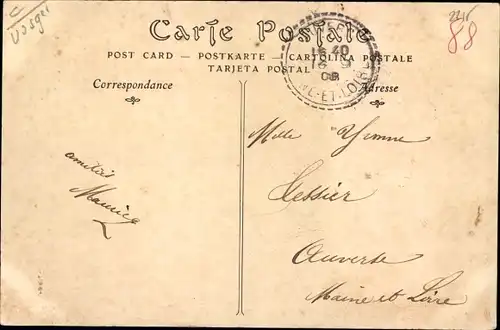 Vosges
2215
88
Carte Postale
POST CARD — POSTKARTE — CARTOLINA POSTALE
TARJETA POSTAL
Correspondance
Adresse
16 40
08
ET-LOIRE
amitiés
Maurice
Melle Yvonne
Tessier
Auverse
Maine et Loire